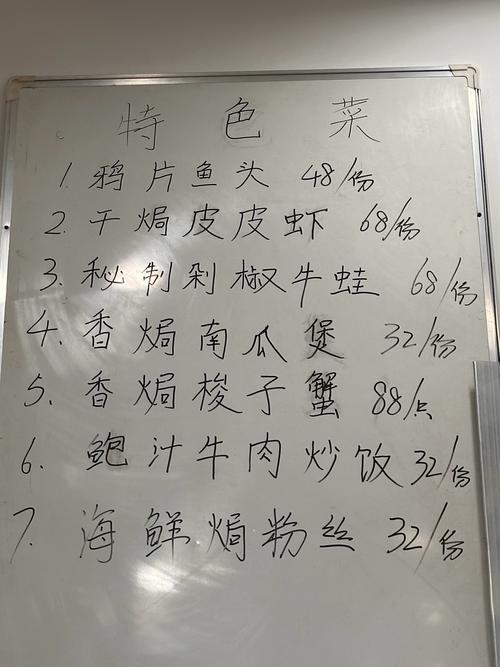 特色菜
1. 鸦片鱼头 48/份
2. 干焗皮皮虾 68/份
3. 秘制剁椒牛蛙 68/份
4. 香焗南瓜煲 32/份
5. 香焗梭子蟹 88/点
6. 鲍汁牛肉炒饭 32/份
7. 海鲜焗粉丝 32/份